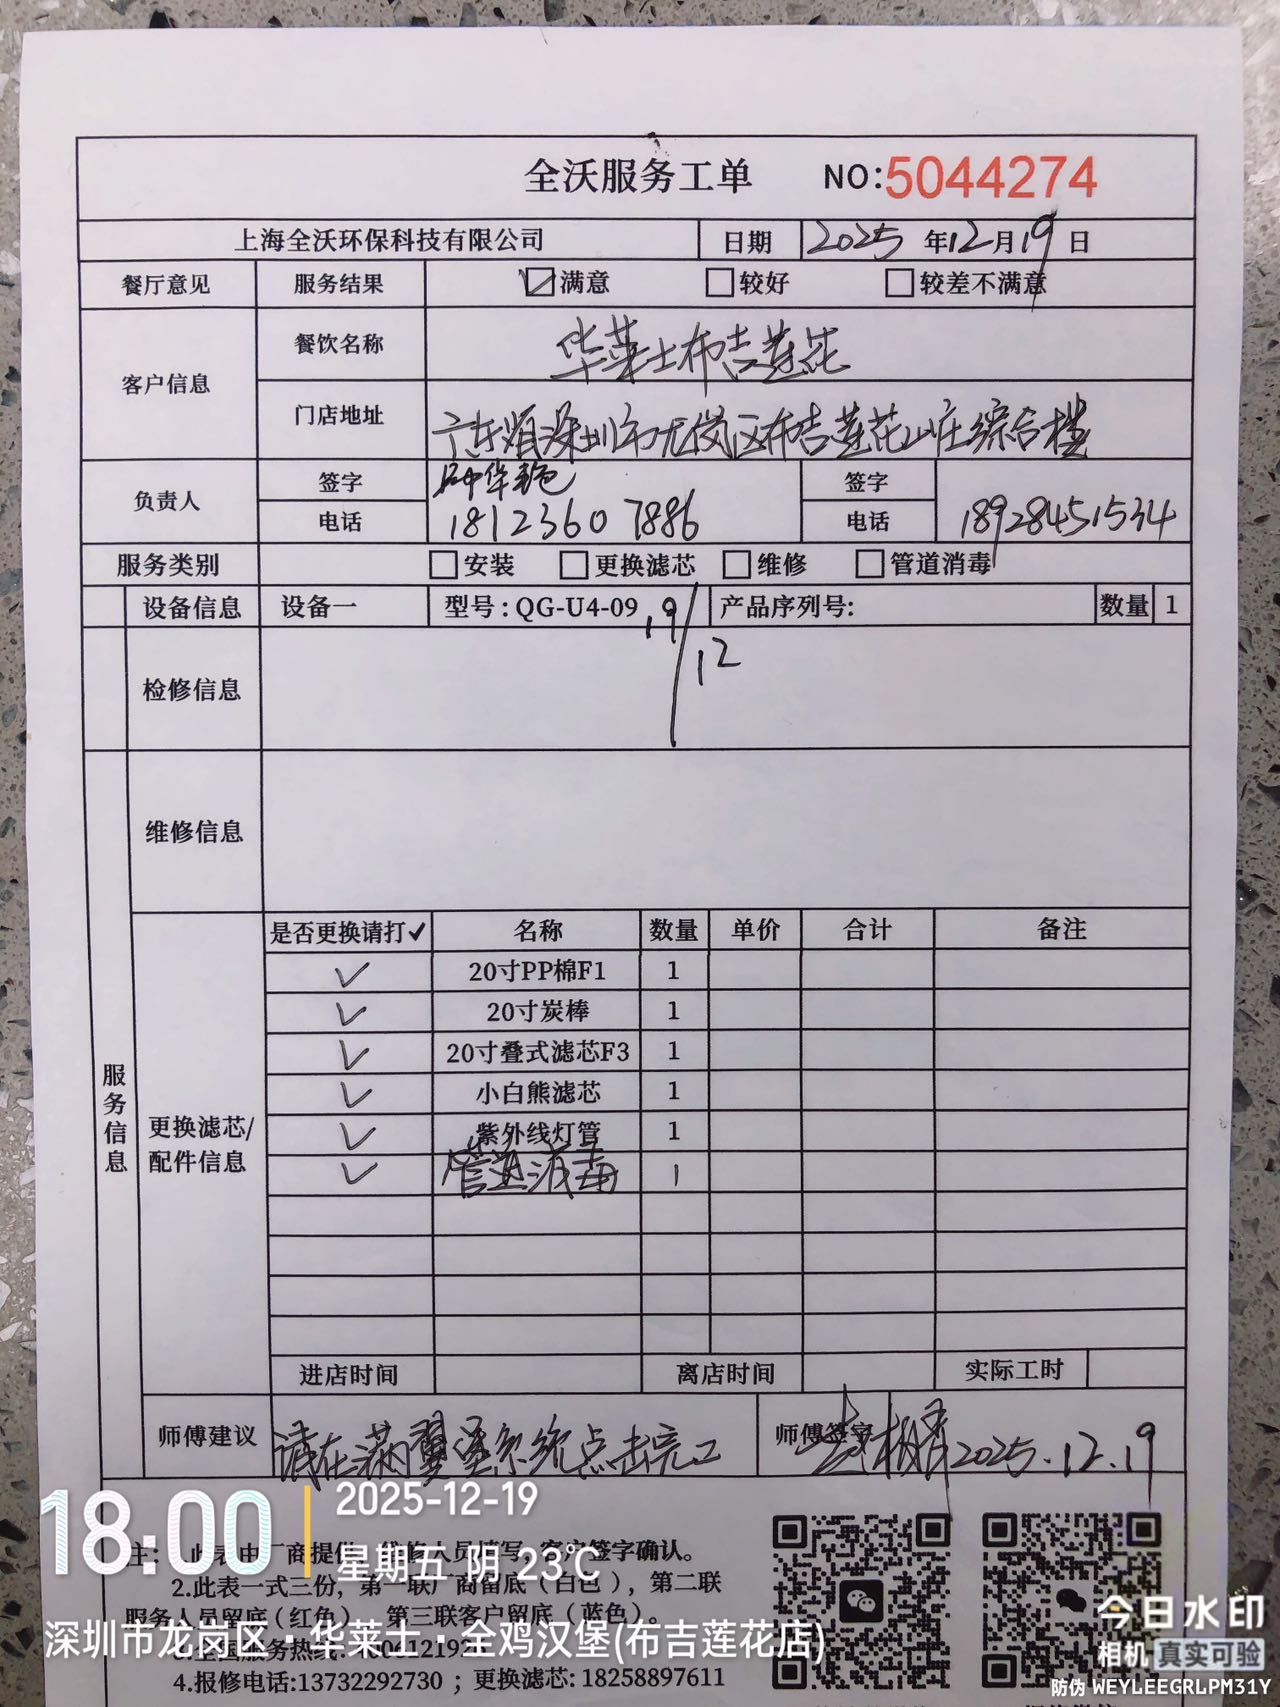 全沃服务工单 NO:5044274
上海全沃环保科技有限公司 日期 2025 年 12 月 19 日
餐厅意见 服务结果 满意 较好 较差不满意
客户信息 餐饮名称 华莱士布吉莲花
门店地址 广东省深圳市龙岗区布吉莲花山庄综合楼
负责人 签字 签字
电话 18123607886 电话 18928451534
服务类别 安装 更换滤芯 维修 管道消毒
设备信息 设备一 型号:QG-U4-09 产品序列号: 数量 1
19/12
检修信息
维修信息
服务信息
更换滤芯/配件信息
是否更换请打✓ 名称 数量 单价 合计 备注
✓ 20寸PP棉F1 1
✓ 20寸炭棒 1
✓ 20寸叠式滤芯F3 1
✓ 小白熊滤芯 1
✓ 紫外线灯管 1
✓ 管道消毒 1
进店时间 离店时间 实际工时
师傅建议 请在 系统点击完工 师傅签字 2025.12.19
18:00 2025-12-19
星期五 阴 23℃
深圳市龙岗区·华莱士·全鸡汉堡(布吉莲花店)
客户签字确认。
2.此表一式三份，第一联厂商留底（白色），第二联
服务人员留底(红色) 第三联客户留底（蓝色）。
4.报修电话:13732292730 ；更换滤芯: 18258897611
今日水印
相机 真实可验
防伪 WEYLEEGRLPM31Y